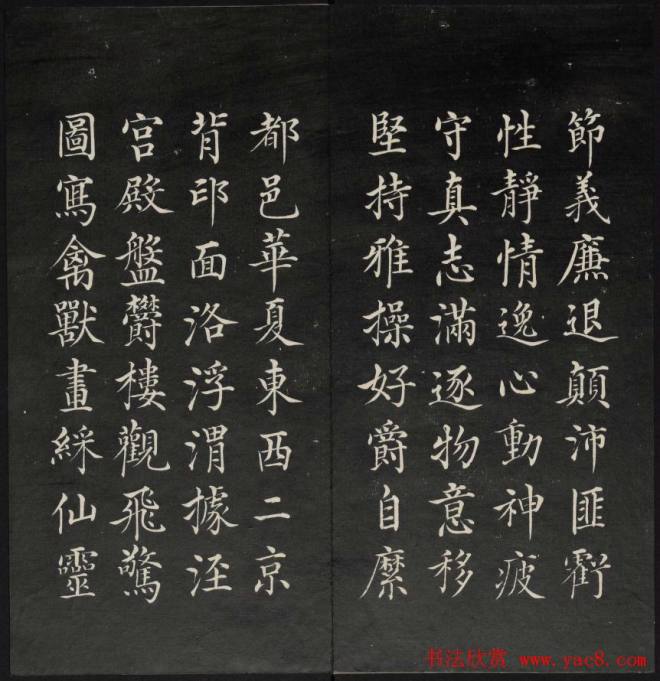 節義廉退顛沛匪虧
性靜情逸心動神疲
守真志滿逐物意移
堅持雅操好爵自縻
都邑華夏東西二京
背邙面洛浮渭據涇
宮殿盤鬱樓觀飛驚
圖寫禽獸畫綵仙靈
书法欣赏 www.yac8.com